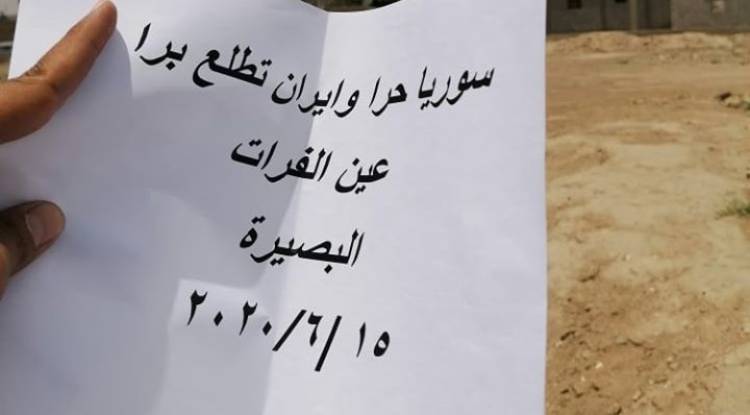 سوريا حرا وايران تطلع برا
عين الفرات
البصيرة
٢٠٢٠/٦/١٥